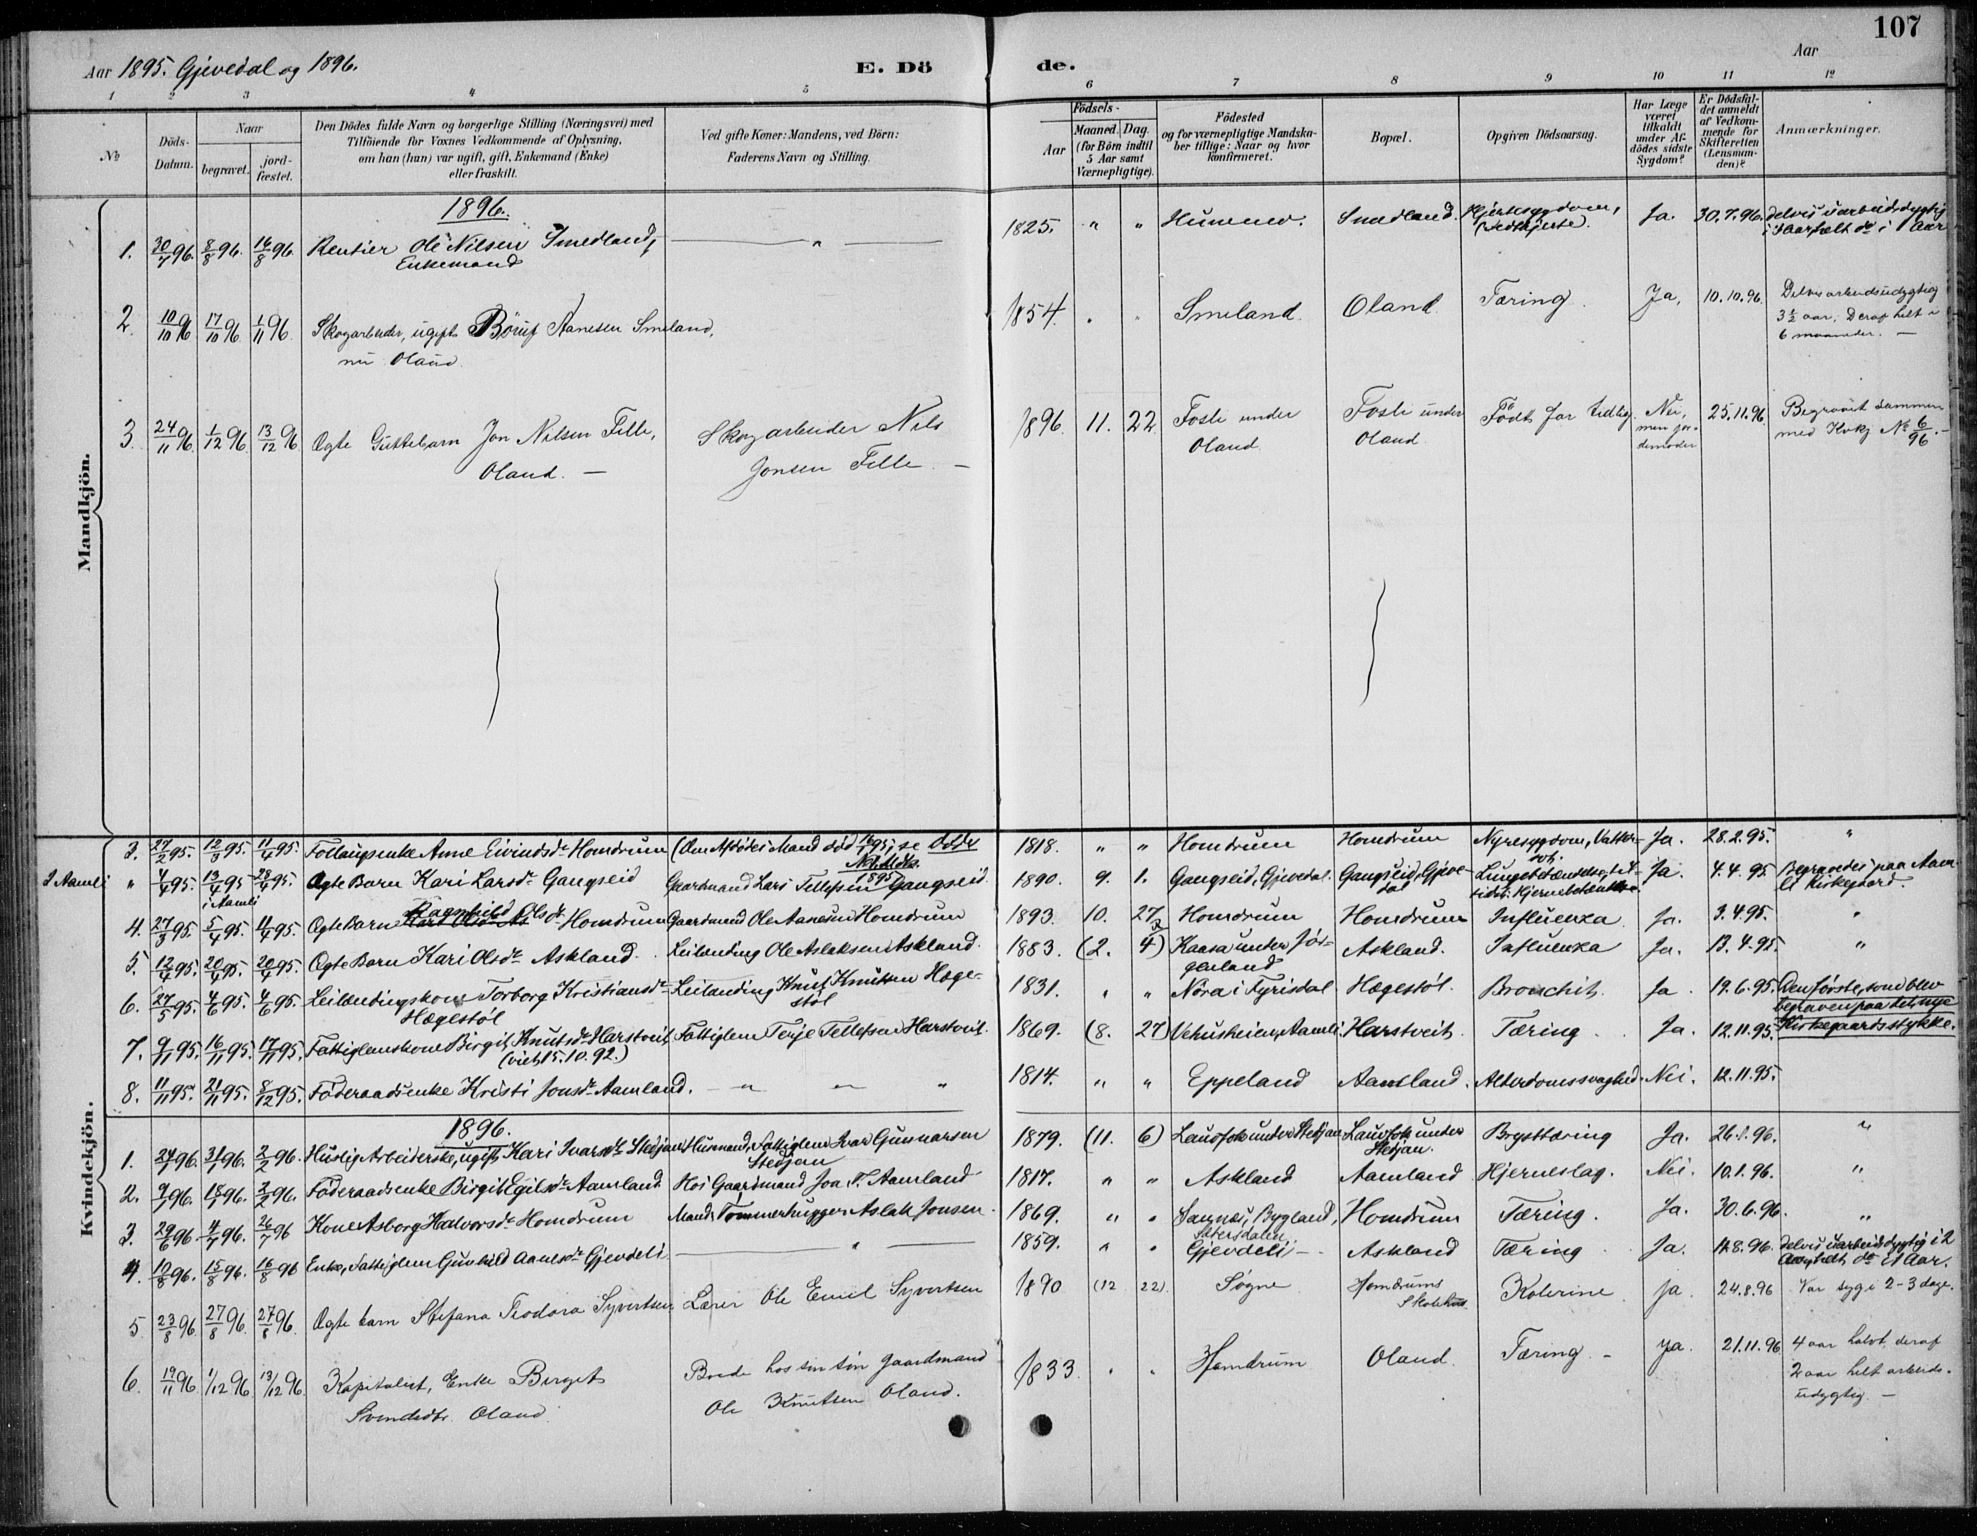 107
Aar 1895. Gjevedal og 1896.
E. Dö
de.
Aar
1 2 3 4 5 6 7 8 9 10 11 12
No
Döds-Datum.
Naar
begravet.
jord-fæstet.
Den Dödes fulde Navn og borgerlige Stilling (Næringsvei) med
Tilföiende for Voxnes Vedkommende af Oplysning,
om han (hun) var ugift, gift, Enkemand (Enke)
eller fraskilt.
Ved gifte Koner: Mandens, ved Börn:
Faderens Navn og Stilling.
Födsels-
Aar
Maaned. Dag.
(for Börn indtil
5 Aar samt
Værnepligtige).
Födested
og for værnepligtige Mandska-
ber tillige: Naar og hvor
konfirmeret.
Bopæl.
Opgiven Dödsaarsag.
Har Læge
været
tilkaldt
under Af-
dödes sidste
Sygdom?
Er Dödsfal-
det anmeldt
af Vedkom-
mende for
Skifteretten
(Lensman-
den)?
Anmærkninger.
Mandkjön.
1896.
1. 30/7 96. 8/8 96. 16/8 96. Rentier Ole Nilsen Smedland, Enkemand — " — 1825. " " Smedland. Hjertesygdom, (Fedthjerte). Ja. 30.7.96.
2. 10/10 96 17/10 96 1/11 96. Skogarbeider, ugift Börup Aanesen Smeland, nu Oland. 1854. " " Smeland. Oland. Tæring. Ja, 10.10.96. Delvis arbeidsudygtig 3½ aar; Deraf helt i 6 maaneder. —
3. 24/11 96. 1/12 96 13/12 96 Ægte Guttebarn Jon Nilsen Felle, Oland. — Skogarbeider Nils Jonsen Felle. — 1896. 11. 22 Fosli under Oland. Fosli under Oland. Födt for tidlig. Nei, men jordemoder 25.11.96 Begravet sammen med Kvkj No 6/96. —
Kvindekjön.
3. 27/2 95. 12/3 95. 11/4 95. Follaugsenke Anne Eivindsdr Homdrum (Om Afdödes Mand död 95; se Döde 1895) 1818. " " Homdrum Homdrum Nyresygdom, Vattersot. Ja. 28.2.95. "
I Aamli " 4/4 95. 13/4 95 i Aamli 28/4 95. Ægte Barn Kari Larsdr Gangseid Gaardmand Lars Tellefsen Gangseid. 1890. 9. 1. Gangseid, Gjevedal. Gangseid, Gjevedal Ja. 4.4.95 Begravedes paa Aamli Kirkegaard.
4. 27/3 95. 5/4 95. 11/4 95. Ægte Barn Ragnhild Olsdr Homdrum Gaardmand Ole Aanesen Homdrum 1893. 10. 27 Homdrum Homdrum Influenza Ja. 3.4.95. "
5. 12/4 95. 20/4 95. 20/4 95. Ægte Barn Kari Olsdr Askland. Leilending Ole Aslaksen Askland. 1883. (2. 4) Kaasa under Jörgenland Askland. Influenza Ja. 13.4.95. "
6. 27/5 95. 4/6 95. 4/6 95. Leilendingskone Torborg Kristiansdr Hægestöl Leilending Knut Knutsen Hægestöl 1831. " " Nora i Fyrisdal Hægestöl. Bronchit. Ja 19.6.95. Den förste, som blev begraven paa det nye Kirkegaardsstykke.
7. 9/11 95. 16/11 95. 17/11 95. Fattiglemskone Birgit Knutsdr Harstveit (viet 15.10.92.) Fattiglem Terje Tellefsen Harstveit. 1869. (8. 27) Vehusheien, Aamli. Harstveit. Tæring. Ja. 12.11.95.
8. 11/11 95. 21/11 95. 8/12 95. Föderaadsenke Kristi Jonsdr Aamland. — " — " 1814. " " Eppeland Aamland. Alderdomssvaghed. Nei. 12.11.95.
1896.
1. 24/1 96. 31/1 96. 2/2 96. Huslig Arbeiderske, ugift Kari Ivarsdr Stedjan, Husmand, Fattiglem Ivar Gunnarsen Stedjan 1879. (11. 6) Laudfok under Stedjan Laudfok under Stedjan. Brysttæring Ja. 26.1.96. "
2. 9/1 96. 18/1 96. 2/2 96. Föderaadsenke Birgit Egilsdr Aamland Hos Gaardmand Joa T. Aamland 1817. " " Askland Aamland Hjerneslag. Nei. 10.1.96. "
3. 29/6 96. 4/7 96. 26/7 96 Kone Asborg Halvorsdr Homdrum Mand: Tömmerhugger Aslak Jonsen 1869. " " Sannes, Bygland, Sætersdalen Homdrum Tæring. Ja. 30.6.96. "
4. 10/8 96. 15/8 96. 16/8 96 Enke, Fattiglem Gunhild Aanesdr Gjevdeli — " — 1859. " " Gjevdeli — Askland Tæring. Ja. 14.8.96. delvis uarbeidsdygtig i 2 Aar, helt do i 1 Aar.
5. 23/8 96 27/8 96. 27/8 96. Ægte barn Stefana Teodora Syvertsen Lærer Ole Emil Syvertsen 1890 (12 22). Søgne Homdrums Skolehus. Kolerine Ja. 24.8.96 Var syg i 2-3 dage.
6. 19/11 96. 1/12 96 13/12 96. Kapitalist, Enke Birgit Svendsdtr Oland. Boede hos sin sön Gaardmand Ole Knutsen Oland. 1833. " " Homdrum Oland. Tæring. — Ja. 21.11.96 4 aar halvt deraf 2 aar helt arbeidsudygtig. —